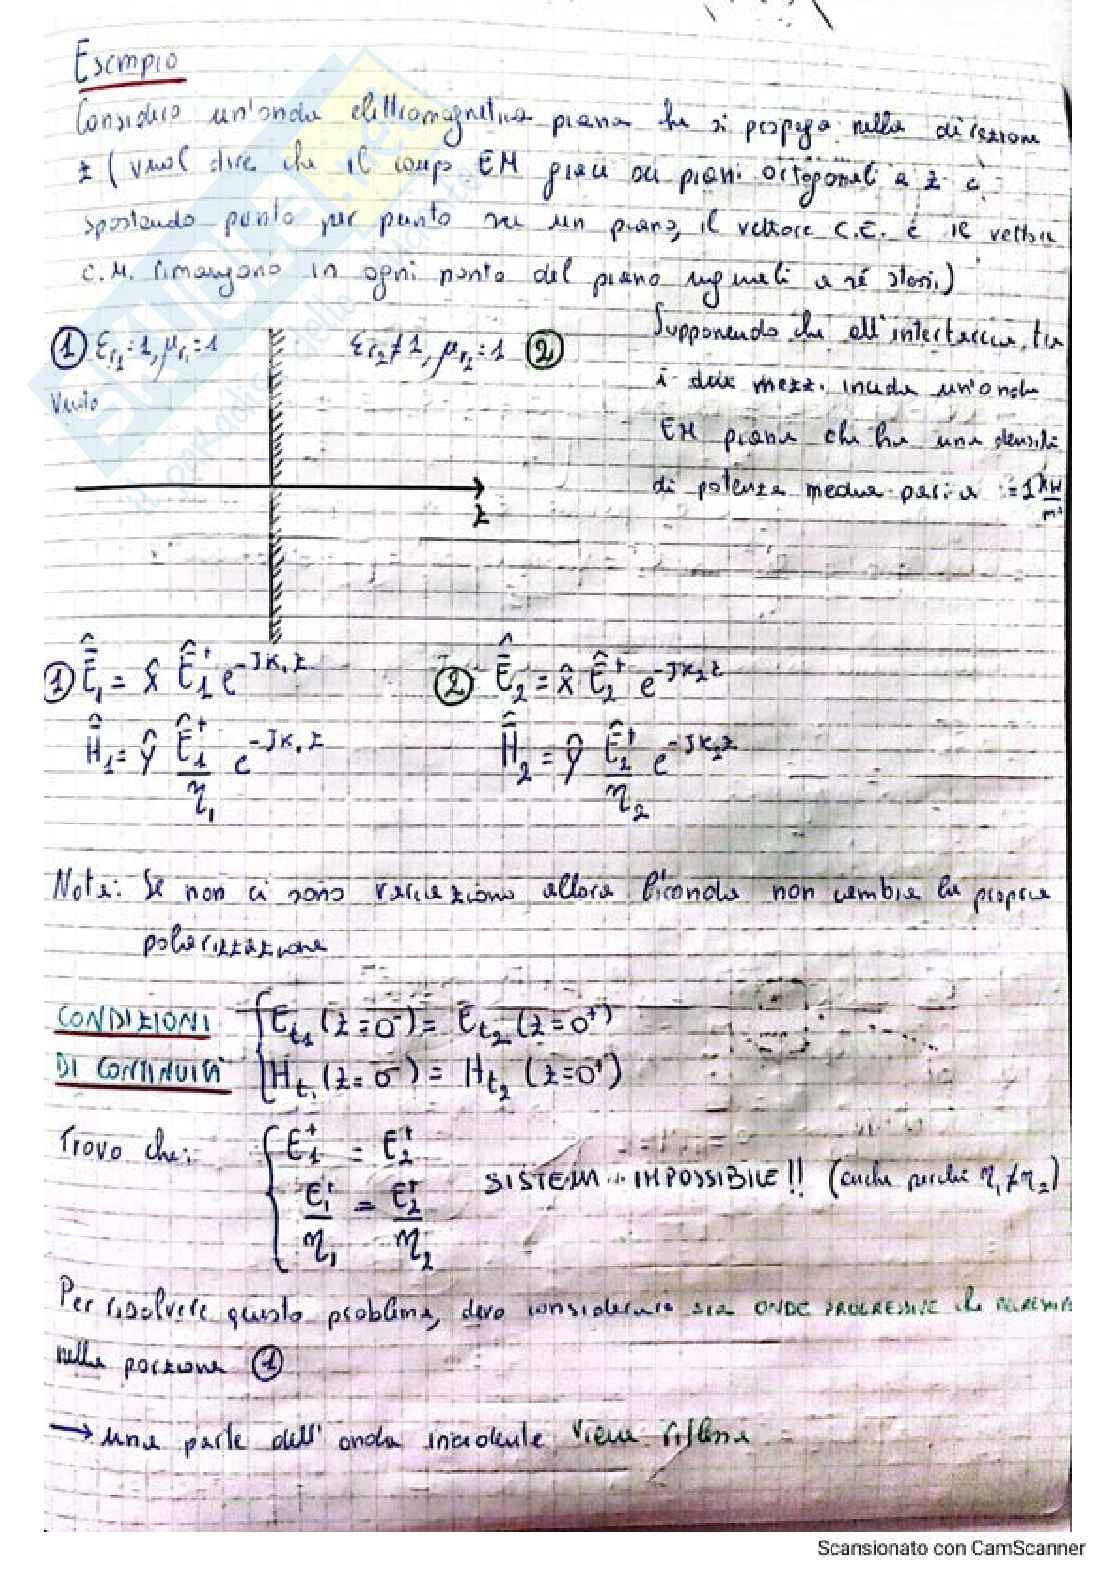 Esempio
Considero un'onda elettromagnetica piana che si propaga nella direzione
z (vuol dire che il campo EM giace su piani ortogonali a z e
spostando punto per punto su un piano, il vettore C.E. e il vettore
C.M. rimangono in ogni punto del piano uguali a sé stessi)
① εr₁=1, μr₁=1 εr₂≠1, μr₂=1 ②
Vuoto
Supponendo che all'interfaccia tra
i due mezzi incida un'onda
EM piana che ha una densità
di potenza media pari a = 1 kW/m²
z
① Ê₁ = x̂ Ê₁⁺ e^-jk₁z ② Ê₂ = x̂ Ê₂⁺ e^-jk₂z
Ĥ₁ = ŷ Ê₁⁺/η₁ e^-jk₁z Ĥ₂ = ŷ Ê₂⁺/η₂ e^-jk₂z
Nota: Se non ci sono variazioni allora l'onda non cambia la propria
polarizzazione
CONDIZIONI Et₁(z=0⁻) = Et₂(z=0⁺)
DI CONTINUITÀ Ht₁(z=0⁻) = Ht₂(z=0⁺)
Trovo che: E₁⁺ = E₂⁺
E₁⁺/η₁ = E₂⁺/η₂ SISTEMA IMPOSSIBILE!! (anche perché η₁≠η₂)
Per risolvere questo problema, devo considerare sia ONDE PROGRESSIVE che REGRESSIVE
nella porzione ①
→ una parte dell'onda incidente viene riflessa
Scansionato con CamScanner